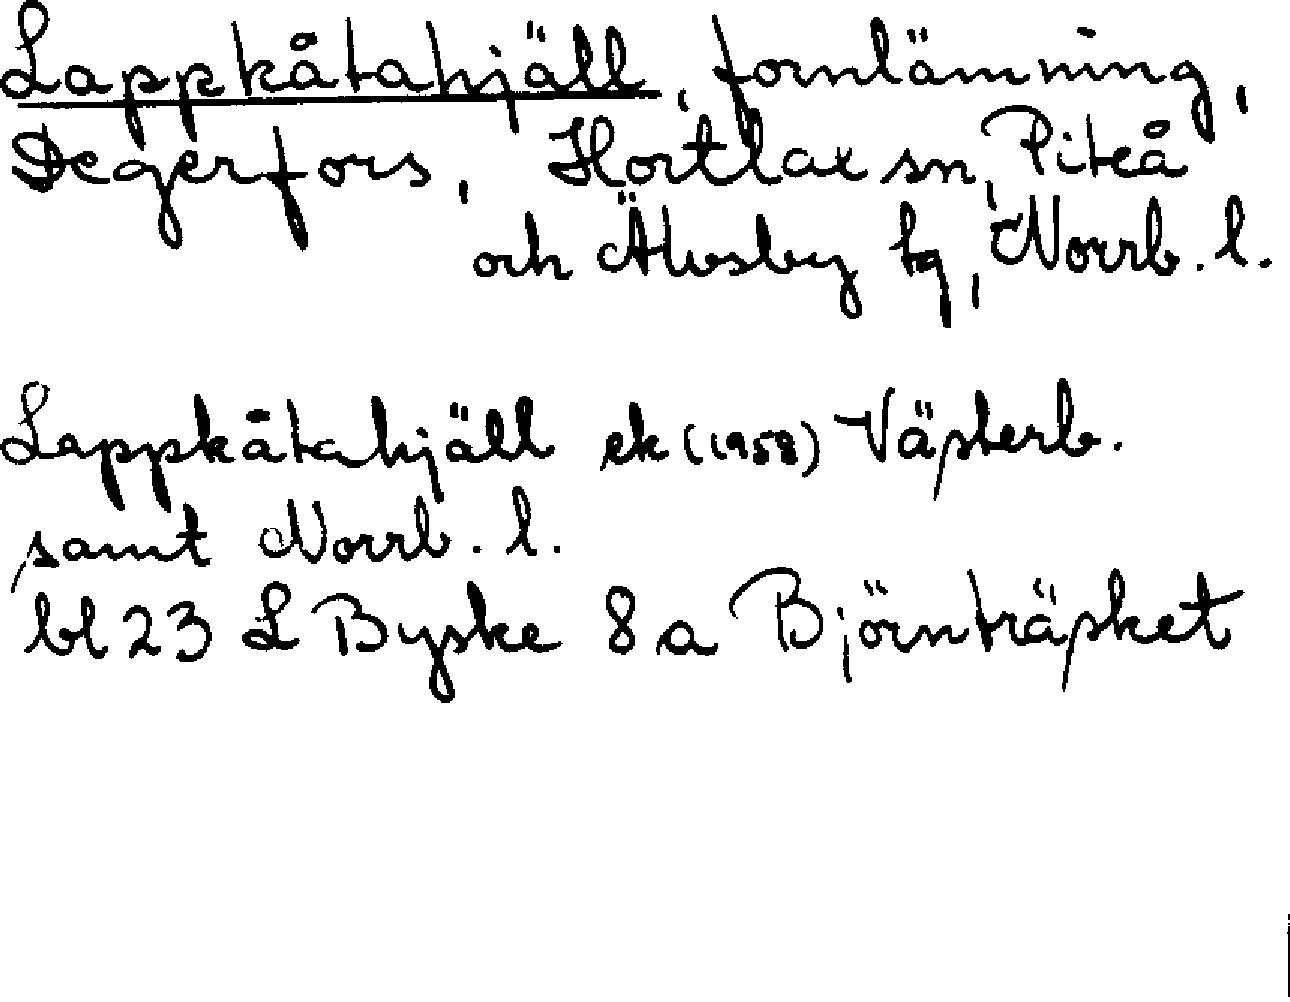 Lappkåtahjäll, fornlämning,
Degerfors, Hortlax sn, Piteå
och Älvsby tg, Norrb. l.
Lappkåtahjäll ek (1958) Västerb.
samt Norrb. l.
bl 23 L Byske 8 a Björnträsket